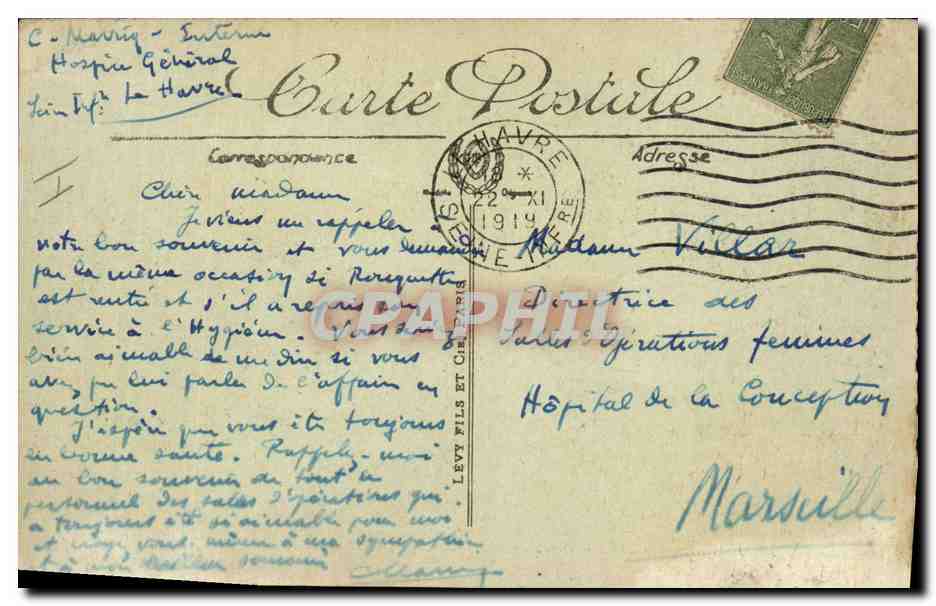 Interne
Hospice Général
Le Havre
Carte Postale
Correspondance
Adresse
LE HAVRE
22 XI
1919
SEINE INFRE
Chère madame
Je viens me rappeler à
votre bon souvenir et vous demander
par la même occasion si Rouquette
est rentré et s'il a repris son
service à l'Hygiène. Vous seriez
bien aimable de me dire si vous
avez pu lui parler de l'affaire en
question.
J'espère que vous êtes toujours
en bonne santé. Rappelez-moi
au bon souvenir de tout le
personnel des salles d'opérations qui
a toujours été si aimable pour moi
et croyez vous-même à ma sympathie
et à mon meilleur souvenir
Madame Villar
Directrice des
Salles d'Opérations femmes
Hôpital de la Conception
Marseille
LEVY FILS ET CIE, PARIS
CPAPHIL